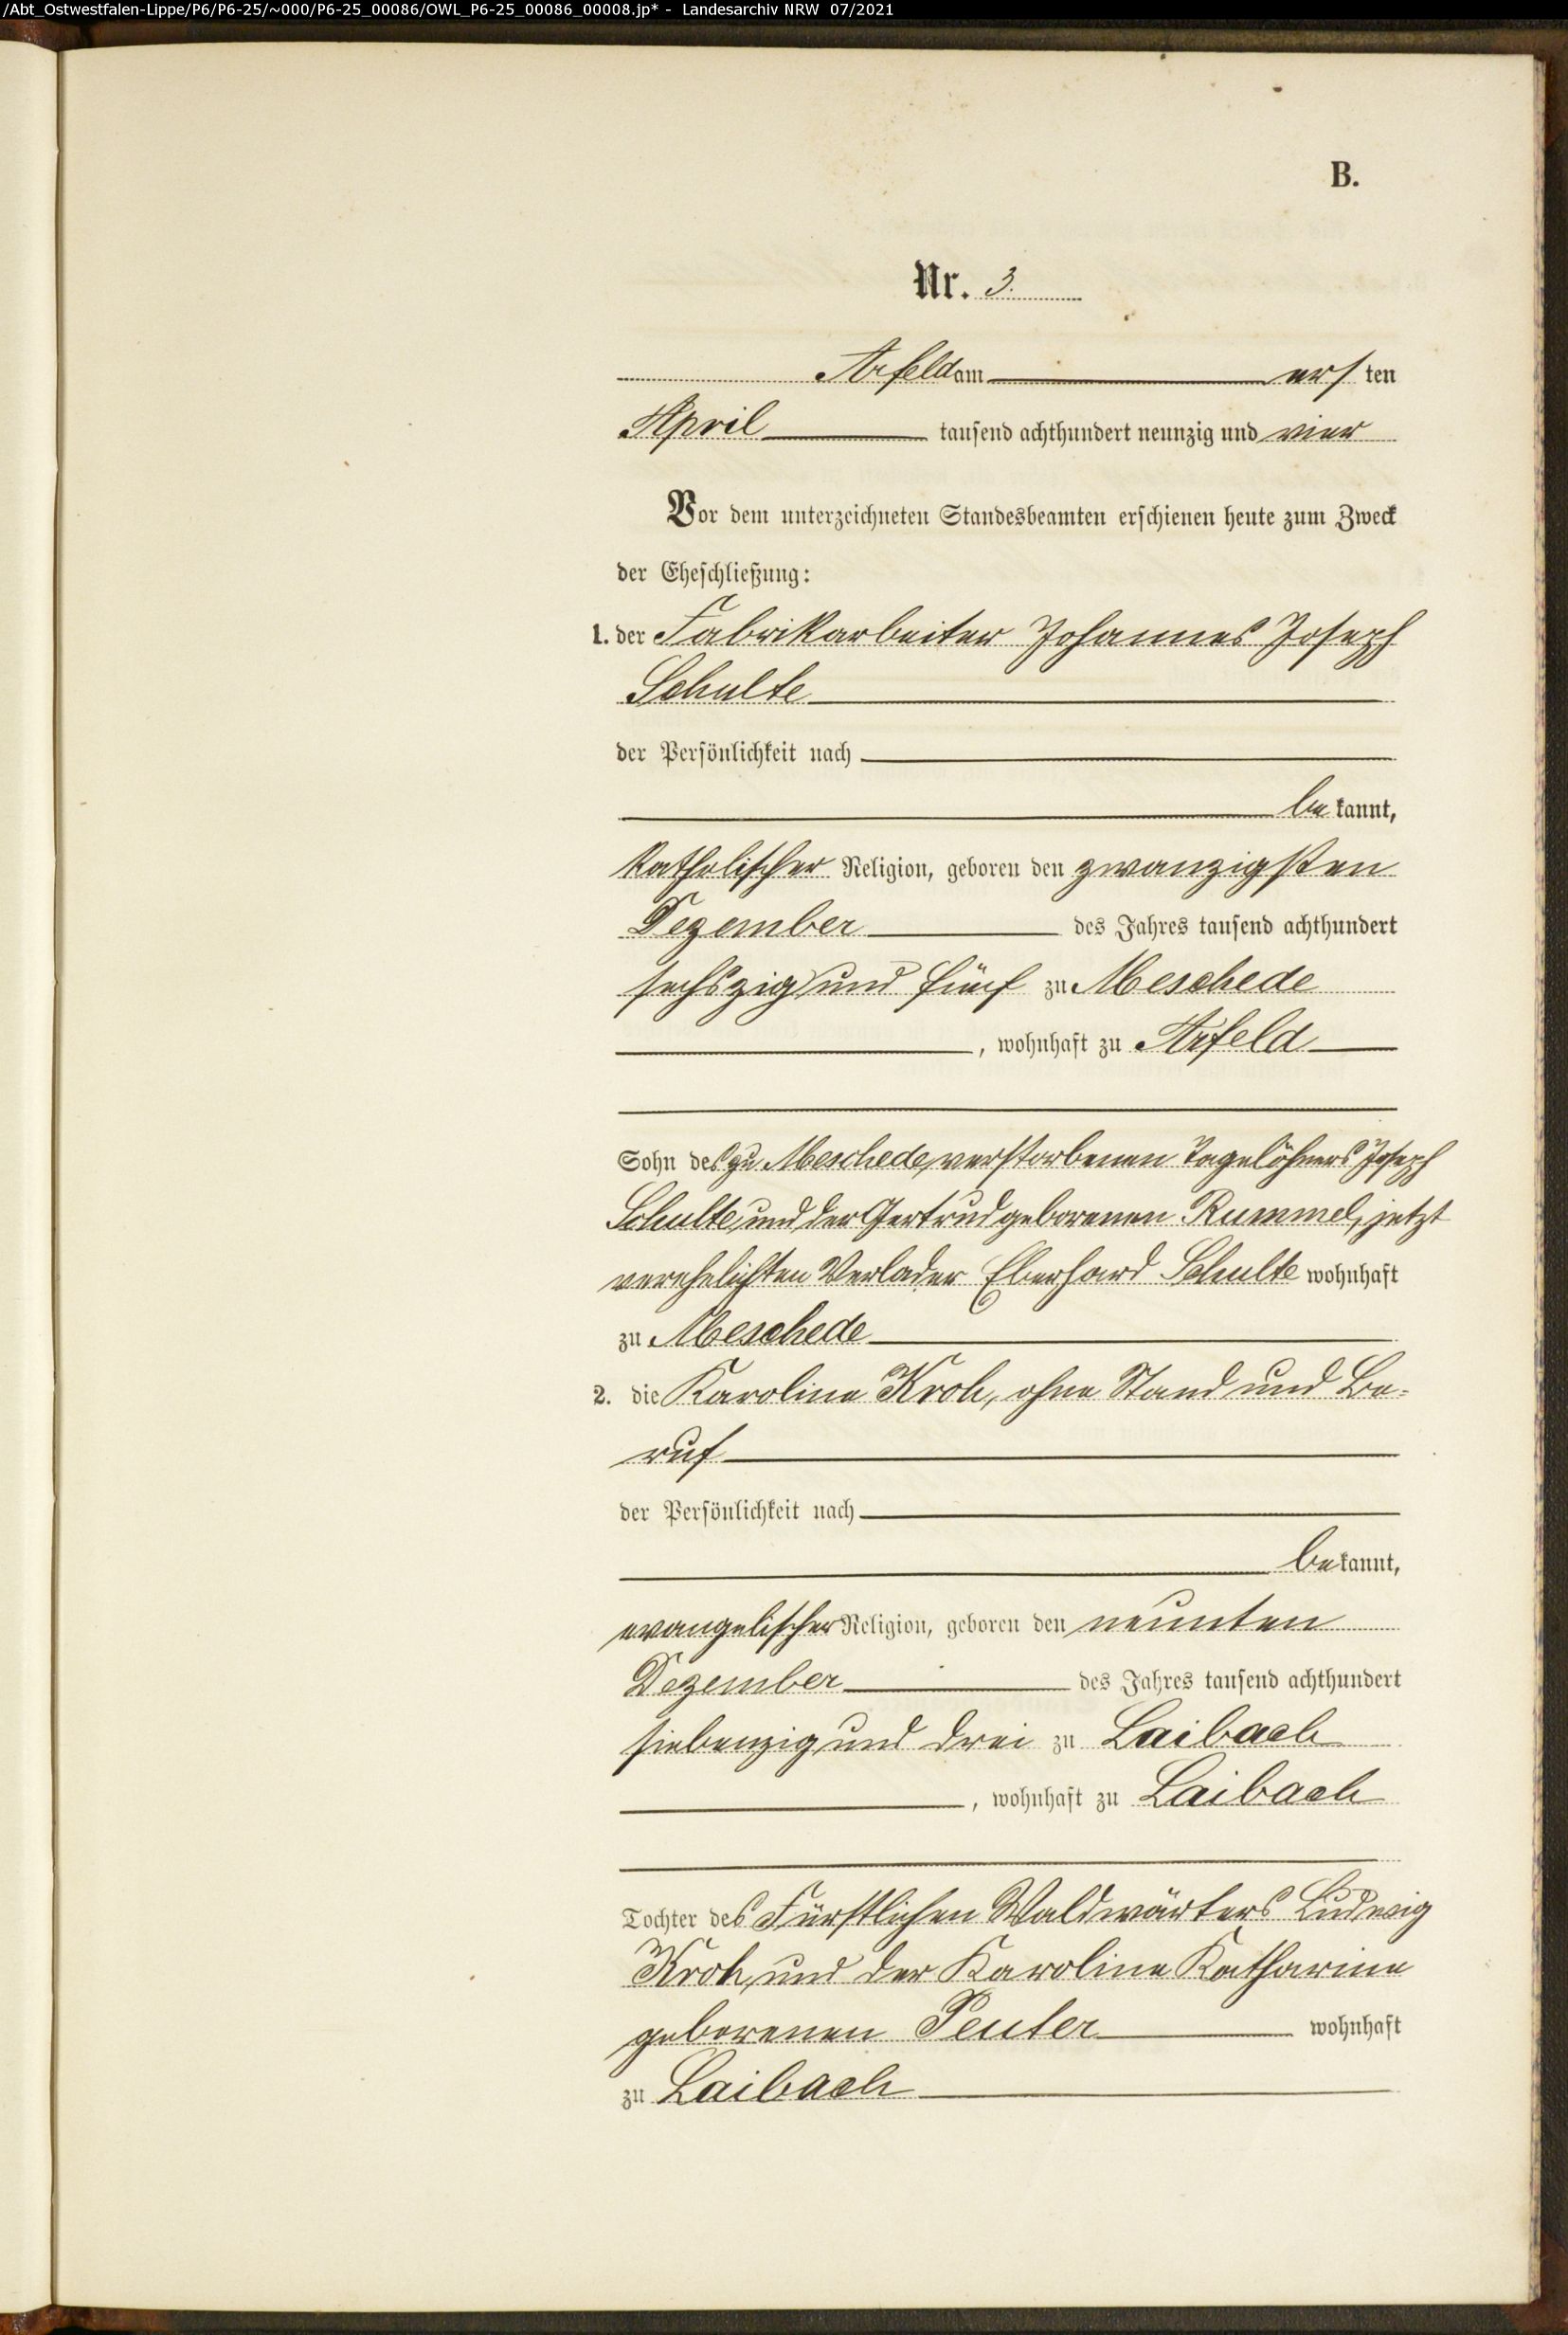 /Abt_Ostwestfalen-Lippe/P6/P6-25/~000/P6-25_00086/OWL_P6-25_00086_00008.jp* - Landesarchiv NRW 07/2021
B.
Nr. 3.
Arfeld am ersten
April tausend achthundert neunzig und vier
Vor dem unterzeichneten Standesbeamten erschienen heute zum Zweck
der Eheschließung:
1. der Fabrikarbeiter Johannes Joseph
Schulte
der Persönlichkeit nach
bekannt,
katholischer Religion, geboren den zwanzigsten
Dezember des Jahres tausend achthundert
sechszig und fünf zu Meschede
, wohnhaft zu Arfeld
Sohn des zu Meschede verstorbenen Tagelöhners Joseph
Schulte und der Gertrud geborenen Rummel, jetzt
verehelichten Verlader Eberhard Schulte wohnhaft
zu Meschede
2. die Karoline Kroh, ohne Stand und Be-
ruf
der Persönlichkeit nach
bekannt,
evangelischer Religion, geboren den neunten
Dezember des Jahres tausend achthundert
siebenzig und drei zu Laibach
, wohnhaft zu Laibach
Tochter des Fürstlichen Waldwärters Ludwig
Kroh, und der Karoline Katharine
geborenen Peuter wohnhaft
zu Laibach